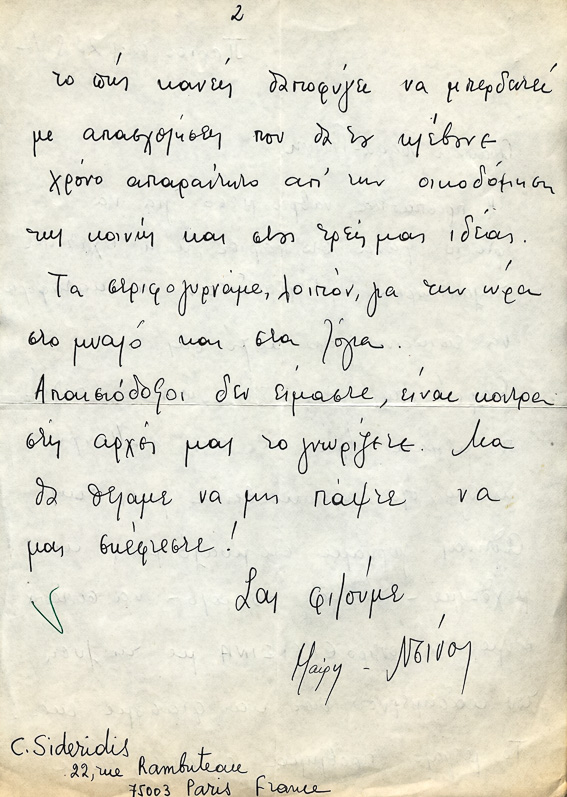 2
το πής κανείς θ' αποφύγει να μπερδευτεί
με απασχολήσεις που θα του κλέβουνε
χρόνο απαραίτητο απ' την οικοδόμηση
της κοινής και στους τρείς μας ιδέας.
Τα στριφογυρνάμε, λοιπόν, για την ώρα
στο μυαλό και στα λόγια.
Απαισιόδοξοι δεν είμαστε, είναι κοντρα
στις αρχές μας το γνωρίζετε. Μα
θα θέλαμε να μη πάψτε να
μας σκέφτεστε!
Σας φιλούμε
Μαίρη - Ντίνος
C. Sideridis
22, rue Rambuteau
75003 Paris France